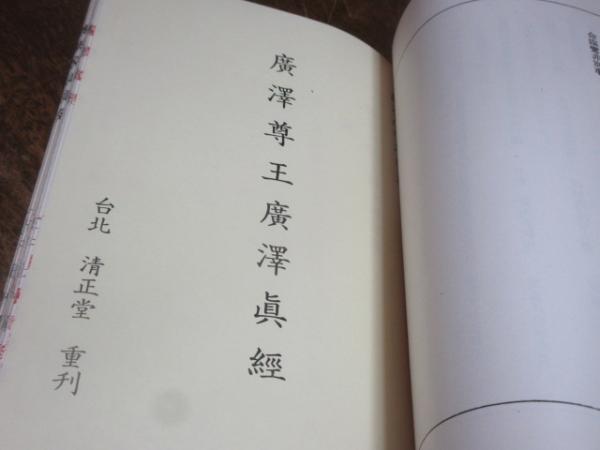 廣澤尊王廣澤眞經
台北 清正堂 重刊